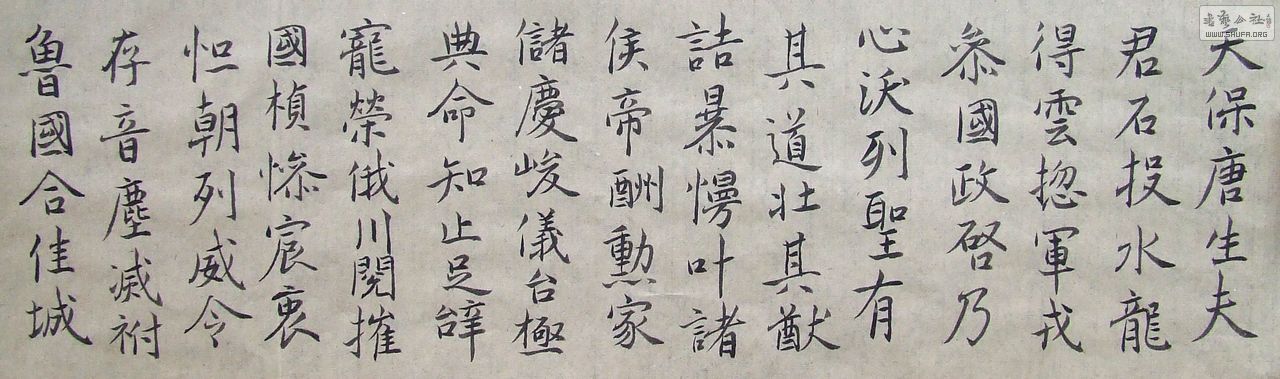 天保唐生夫
君石投水龍
得雲揔軍戎
叅國政啓乃
心沃列聖有
其道壯其猷
詰暴慢叶諸
侯帝酬勲家
儲慶峻儀台極
典命知止足辝
寵榮俄川閱摧
國楨惨宸衷
怛朝列威令
存音塵滅祔
魯國合佳城
書藝公社
WWW.SHUFA.ORG